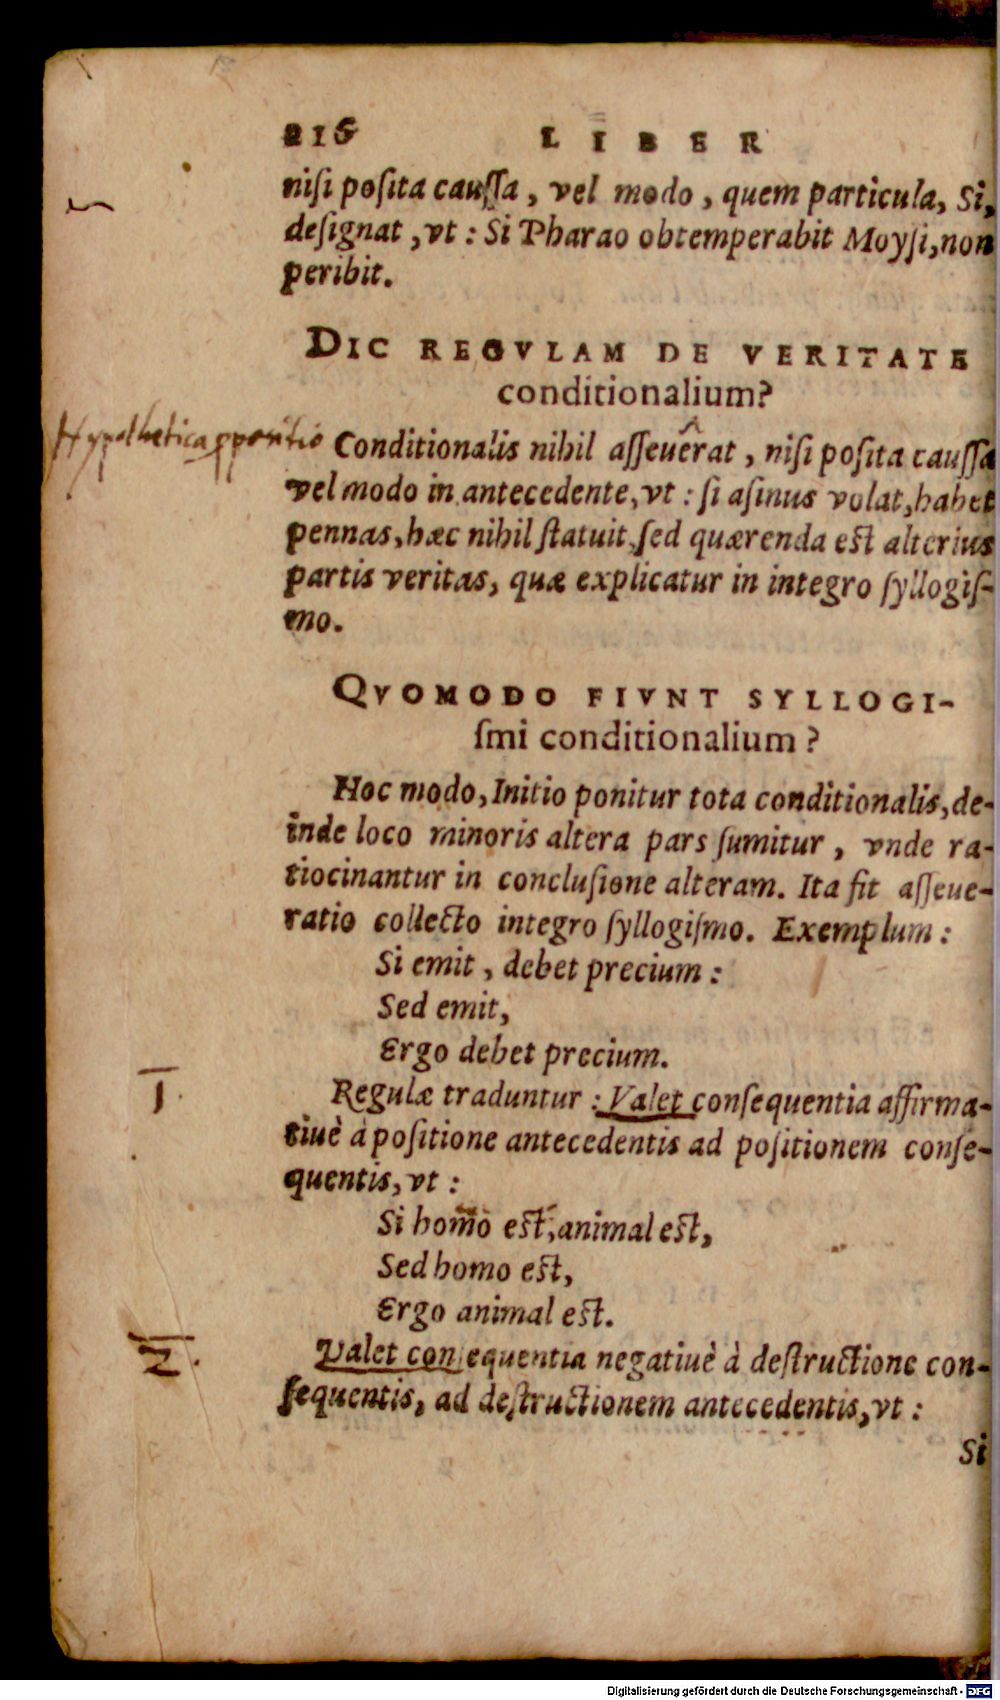 216 LIBER
niſi poſita cauſſa, vel modo, quem particula, Si,
deſignat, vt: Si Pharao obtemperabit Moyſi, non
peribit.
DIC REGVLAM DE VERITATE
conditionalium?
Hypothetica ppositio
Conditionalis nihil aſſeuerat, niſi poſita cauſſa
vel modo in antecedente, vt: ſi aſinus volat, habet
pennas, hæc nihil ſtatuit, ſed quærenda eſt alterius
partis veritas, quæ explicatur in integro ſyllogiſ-
mo.
QVOMODO FIVNT SYLLOGI-
ſmi conditionalium?
Hoc modo, Initio ponitur tota conditionalis, de-
inde loco minoris altera pars ſumitur, vnde ra-
tiocinantur in concluſione alteram. Ita fit aſſeue-
ratio collecto integro ſyllogiſmo. Exemplum:
Si emit, debet precium:
Sed emit,
Ergo debet precium.
I.
Regulæ traduntur: Valet conſequentia affirma-
tiuè à poſitione antecedentis ad poſitionem conſe-
quentis, vt:
Si homo eſt, animal eſt,
Sed homo eſt,
Ergo animal eſt.
2.
Valet conſequentia negatiuè à deſtructione con-
ſequentis, ad deſtructionem antecedentis, vt:
Si
Digitalisierung gefördert durch die Deutsche Forschungsgemeinschaft - DFG